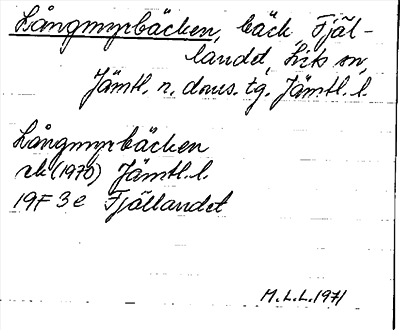 Långmyrbäcken, bäck, Fjäl-
landet, Lits sn,
Jämtl. n. doms. tg. Jämtl. l.
Långmyrbäcken
rk (1970) Jämtl. l.
19F 3e Fjällandet
M.L.L. 1971